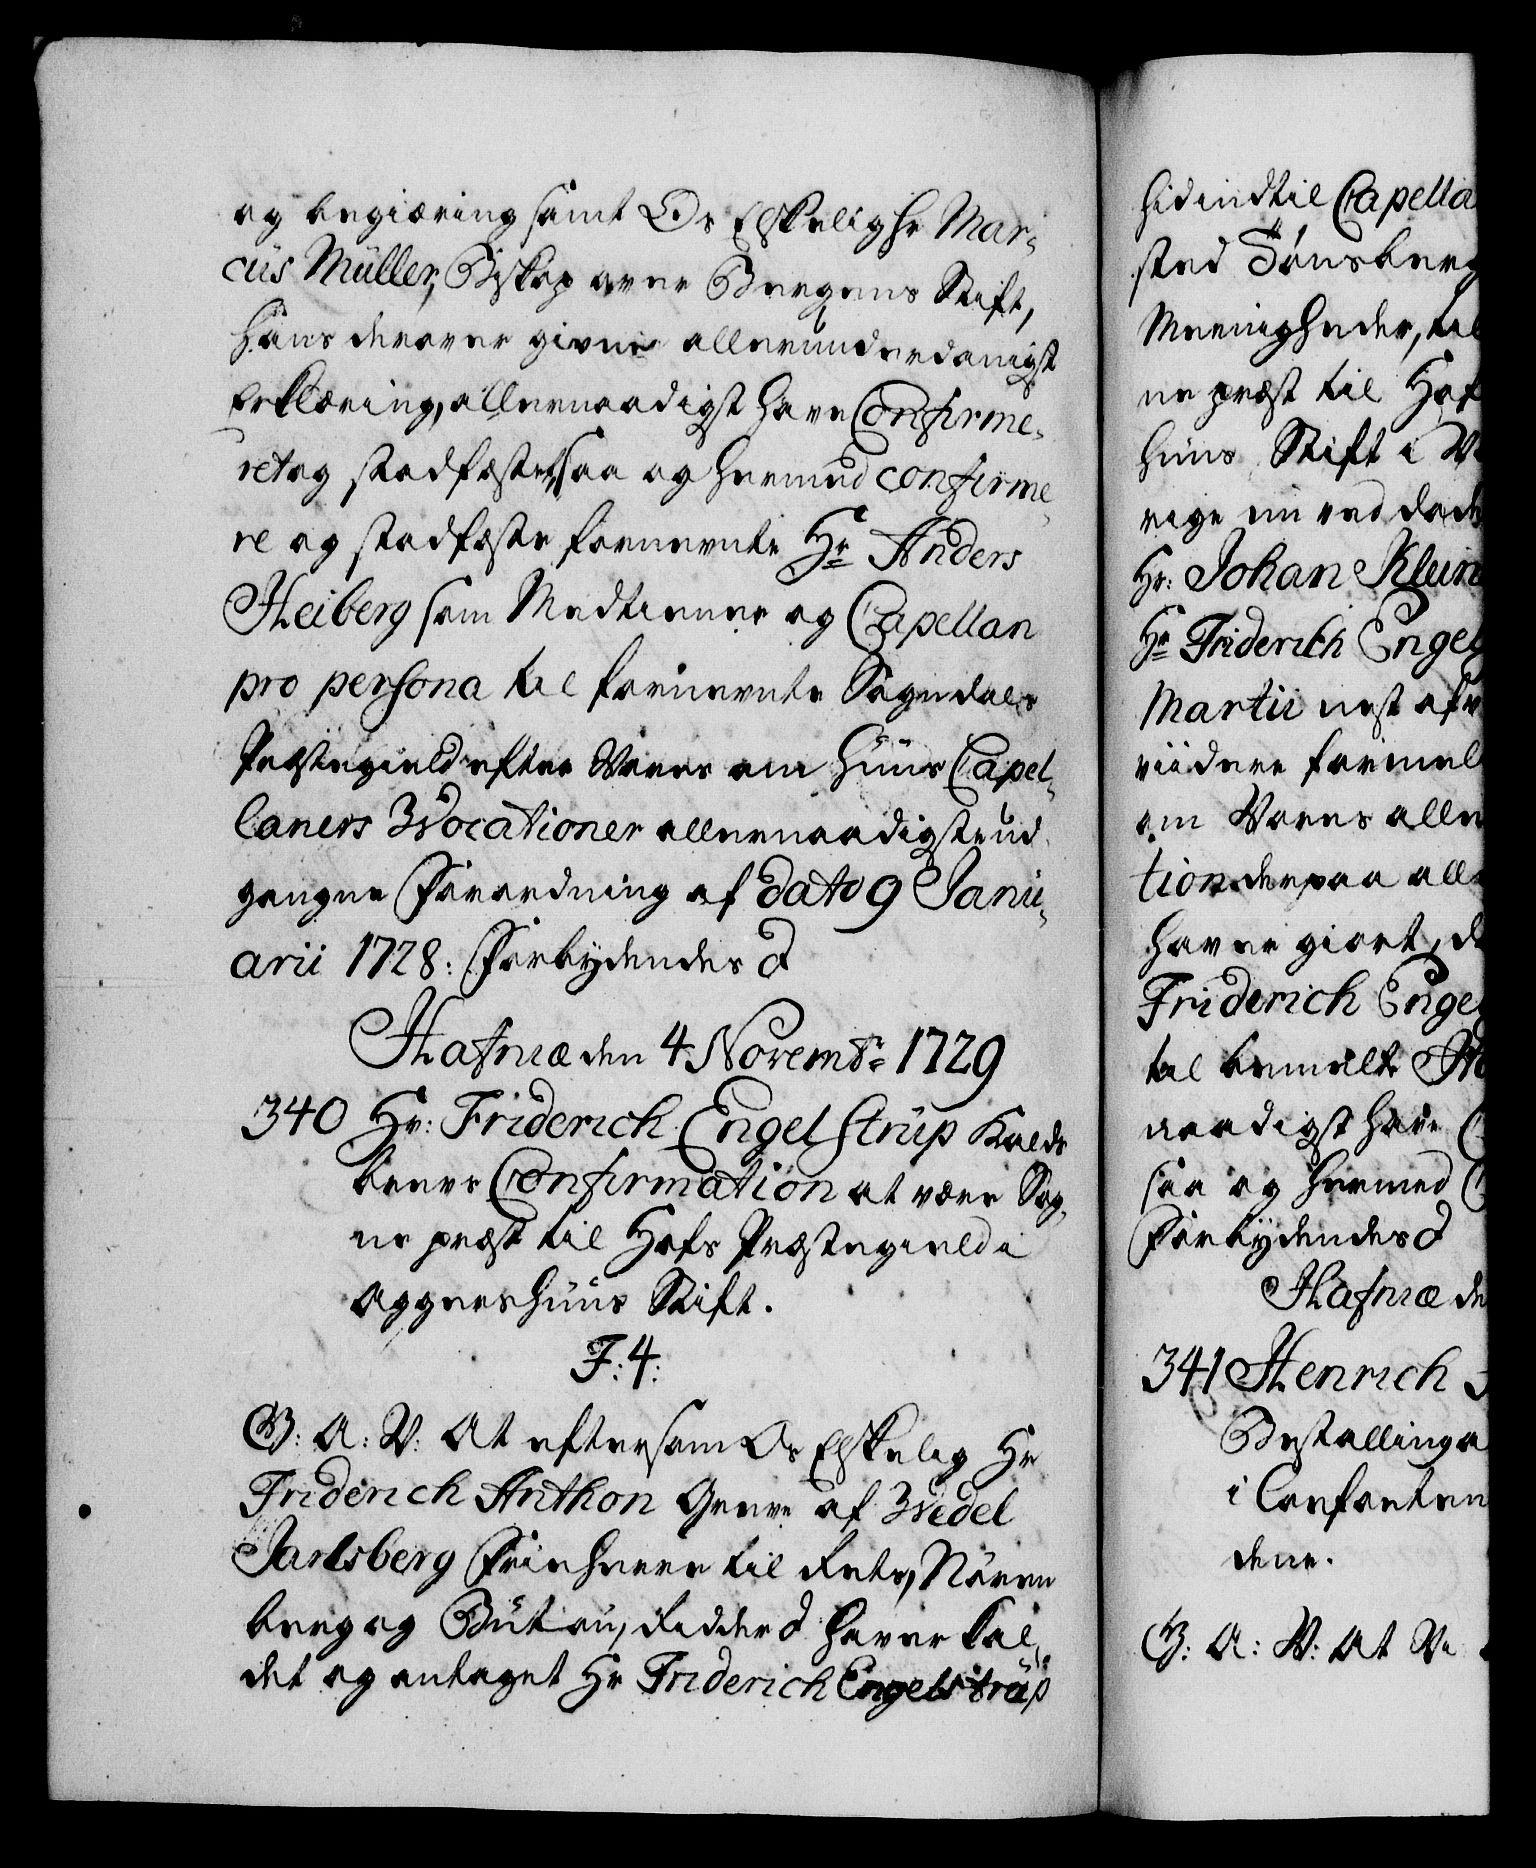 og begiæring samt Os Elskelig Hr Mar-
cus Müller, Biskop over Bergens Stift,
hans derover givne allerunderdanigst
Erklæring, allernaadigst have Confirme-
ret og stadfæstet, saa og hermed confirme
re og stadfæste fornevnte Hr Anders
Heiberg som Medtienere og Capellan
pro persona til fornevnte Sognedals
Præstegield efter Vores om huus Capel-
laners Vocationer allernaadigste ud
gangne Forordning af dato 9 Janu-
arii 1728: Forbydendes &
Hafniæ den 4 Novembr 1729
340 Hr: Friderich Engelstrüp Kalds
brevs Confirmation at være Sog-
ne præst til Hofs Præstegield i
Aggershuus Stift.
F: 4:
G: A: V: At eftersom Os Elskelig Hr
Friderich Anthon Greve af Wedel
Jarlsberg Friherre til Noren
berg og Rütau, Ridder & haver kal-
det og antaget Hr Friderich Engelstrüp
hidindtil Capella
sted Tønsberg
Meenigheder, til
ne præst til Hof
huus Stift i
rige nu ved døde
Hr: Johan Klein
Hr Friderich Engel
Martii nest afv
viidere formel
om Vores aller
tion derpaa all
haver giort, d
Friderich Engel
til bemelte
naadigst have C
saa og hermed C
Forbydendes &
Hafniæ de
341 Henrich
Bestalling a
i Corporten
dene.
G: A: V: At Vi